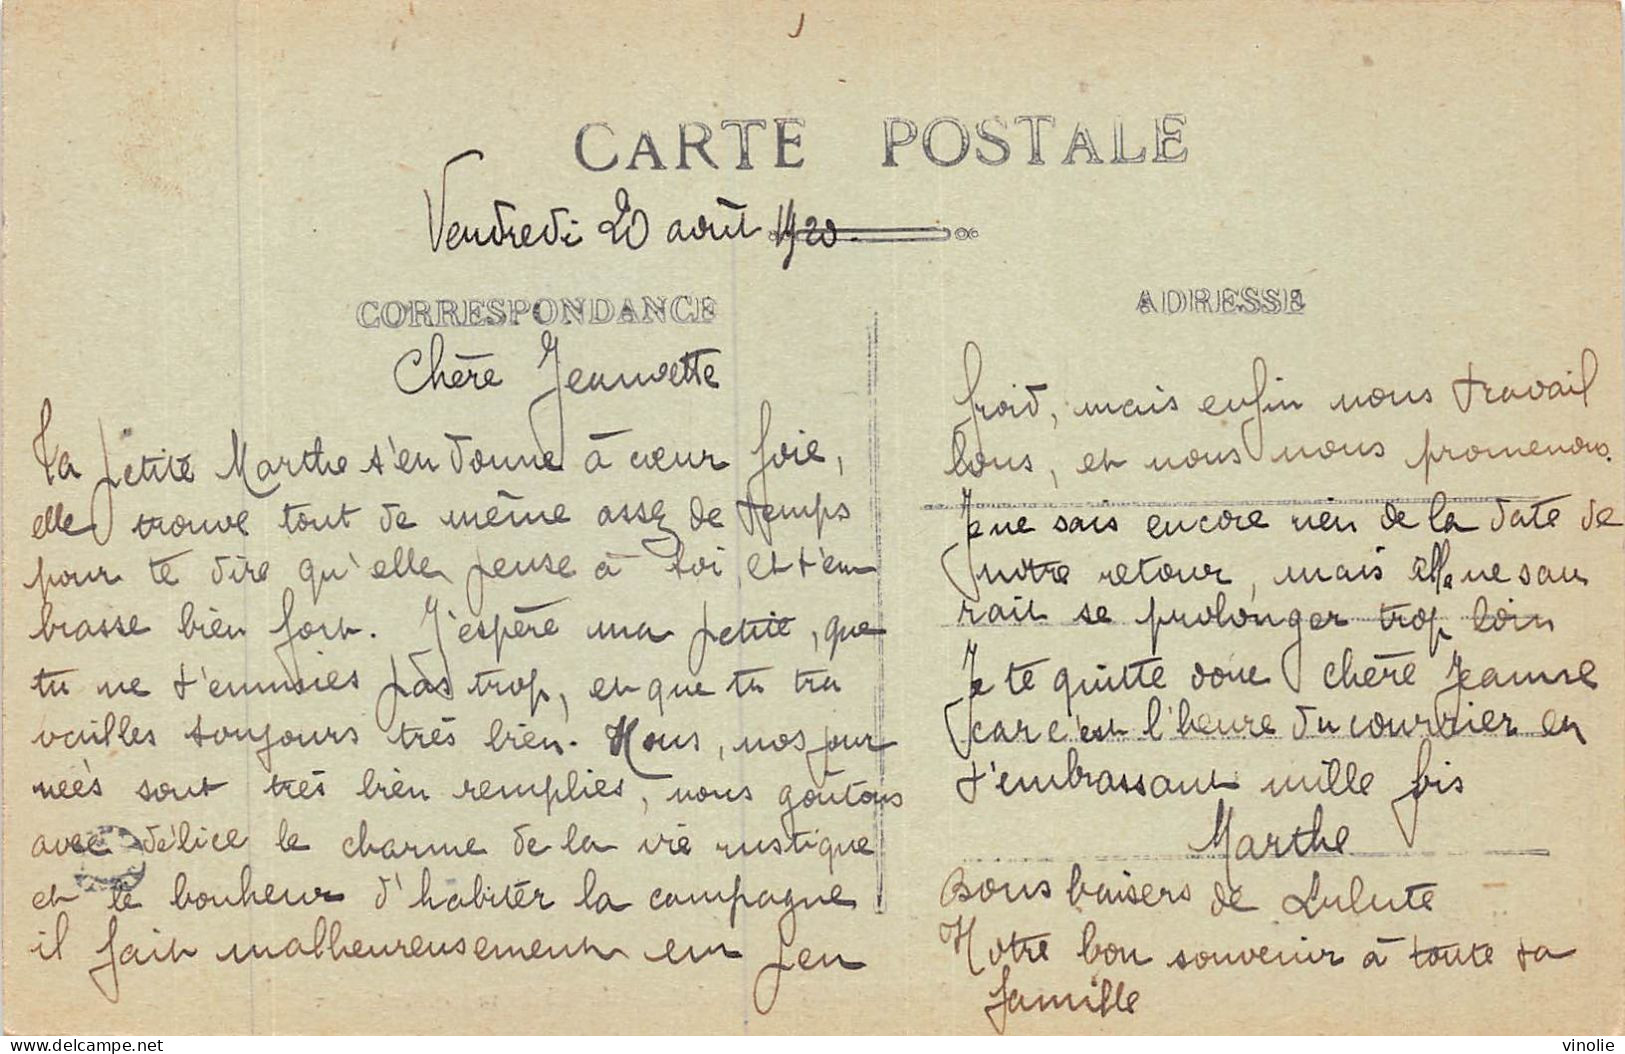 CARTE POSTALE
Vendredi 20 août 1920.
CORRESPONDANCE
Chère Jeannette
Ta petite Marthe s'en donne à cœur joie,
elle trouve tout de même assez de temps
pour te dire qu'elle pense à toi et t'em
brasse bien fort. J'espère ma petite, que
tu ne t'ennuies pas trop, et que tu tra
vailles toujours très bien. Nous, nos jour
nées sont très bien remplies, nous goûtons
avec délice le charme de la vie rustique
et le bonheur d'habiter la campagne
il fait malheureusement un peu
ADRESSE
froid, mais enfin nous travail
lons, et nous nous promenons.
Je ne sais encore rien de la date de
notre retour, mais elle ne sau
rait se prolonger trop loin
Je te quitte donc chère Jeanne
car c'est l'heure du courrier en
t'embrassant mille fois
Marthe
Bons baisers de Lulute
Notre bon souvenir à toute ta
famille
delcampe.net
vinolie